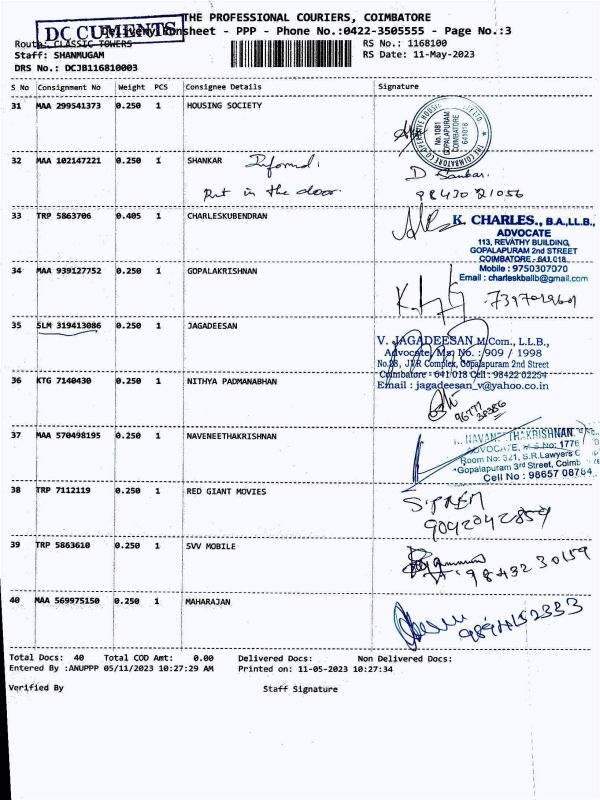 THE PROFESSIONAL COURIERS, COIMBATORE
DOCUMENTS
Delivery Runsheet - PPP - Phone No.:0422-3505555 - Page No.:3
Route: CLASSIC TOWERS RS No.: 1168100
Staff: SHANMUGAM RS Date: 11-May-2023
DRS No.: DCJB116810003
S No Consignment No Weight PCS Consignee Details Signature
31 MAA 299541373 0.250 1 HOUSING SOCIETY
No.1081
GOPALAPURAM
COIMBATORE
641018
32 MAA 102147221 0.250 1 SHANKAR Informed.
Put in the door.
D Sankar.
98430 21056
33 TRP 5863706 0.405 1 CHARLESKUBENDRAN
K. CHARLES., B.A.,LL.B.,
ADVOCATE
113, REVATHY BUILDING
GOPALAPURAM 2nd STREET
COIMBATORE - 641.018.
Mobile : 9750307070
Email : charleskballb@gmail.com
34 MAA 939127752 0.250 1 GOPALAKRISHNAN
35 SLM 319413086 0.250 1 JAGADEESAN
V. JAGADEESAN M.Com., L.L.B.,
Advocate, Ms. No. : 909 / 1998
No.28, JVR Complex, Gopalapuram 2nd Street
Coimbatore - 641 018 Cell : 98422 02254
Email : jagadeesan_v@yahoo.co.in
36 KTG 7140430 0.250 1 NITHYA PADMANABHAN
37 MAA 570498195 0.250 1 NAVENEETHAKRISHNAN
ADVOCATE, M.S.No: 1776
Room No: 321, S.R.Lawyers
Gopalapuram 3rd Street, Coimb
Cell No : 98657 08784
38 TRP 7112119 0.250 1 RED GIANT MOVIES
S.PREM
9042042859
39 TRP 5863610 0.250 1 SVV MOBILE
98432 30159
40 MAA 569975150 0.250 1 MAHARAJAN
9894152333
Total Docs: 40 Total COD Amt: 0.00 Delivered Docs: Non Delivered Docs:
Entered By :ANUPPP 05/11/2023 10:27:29 AM Printed on: 11-05-2023 10:27:34
Verified By Staff Signature